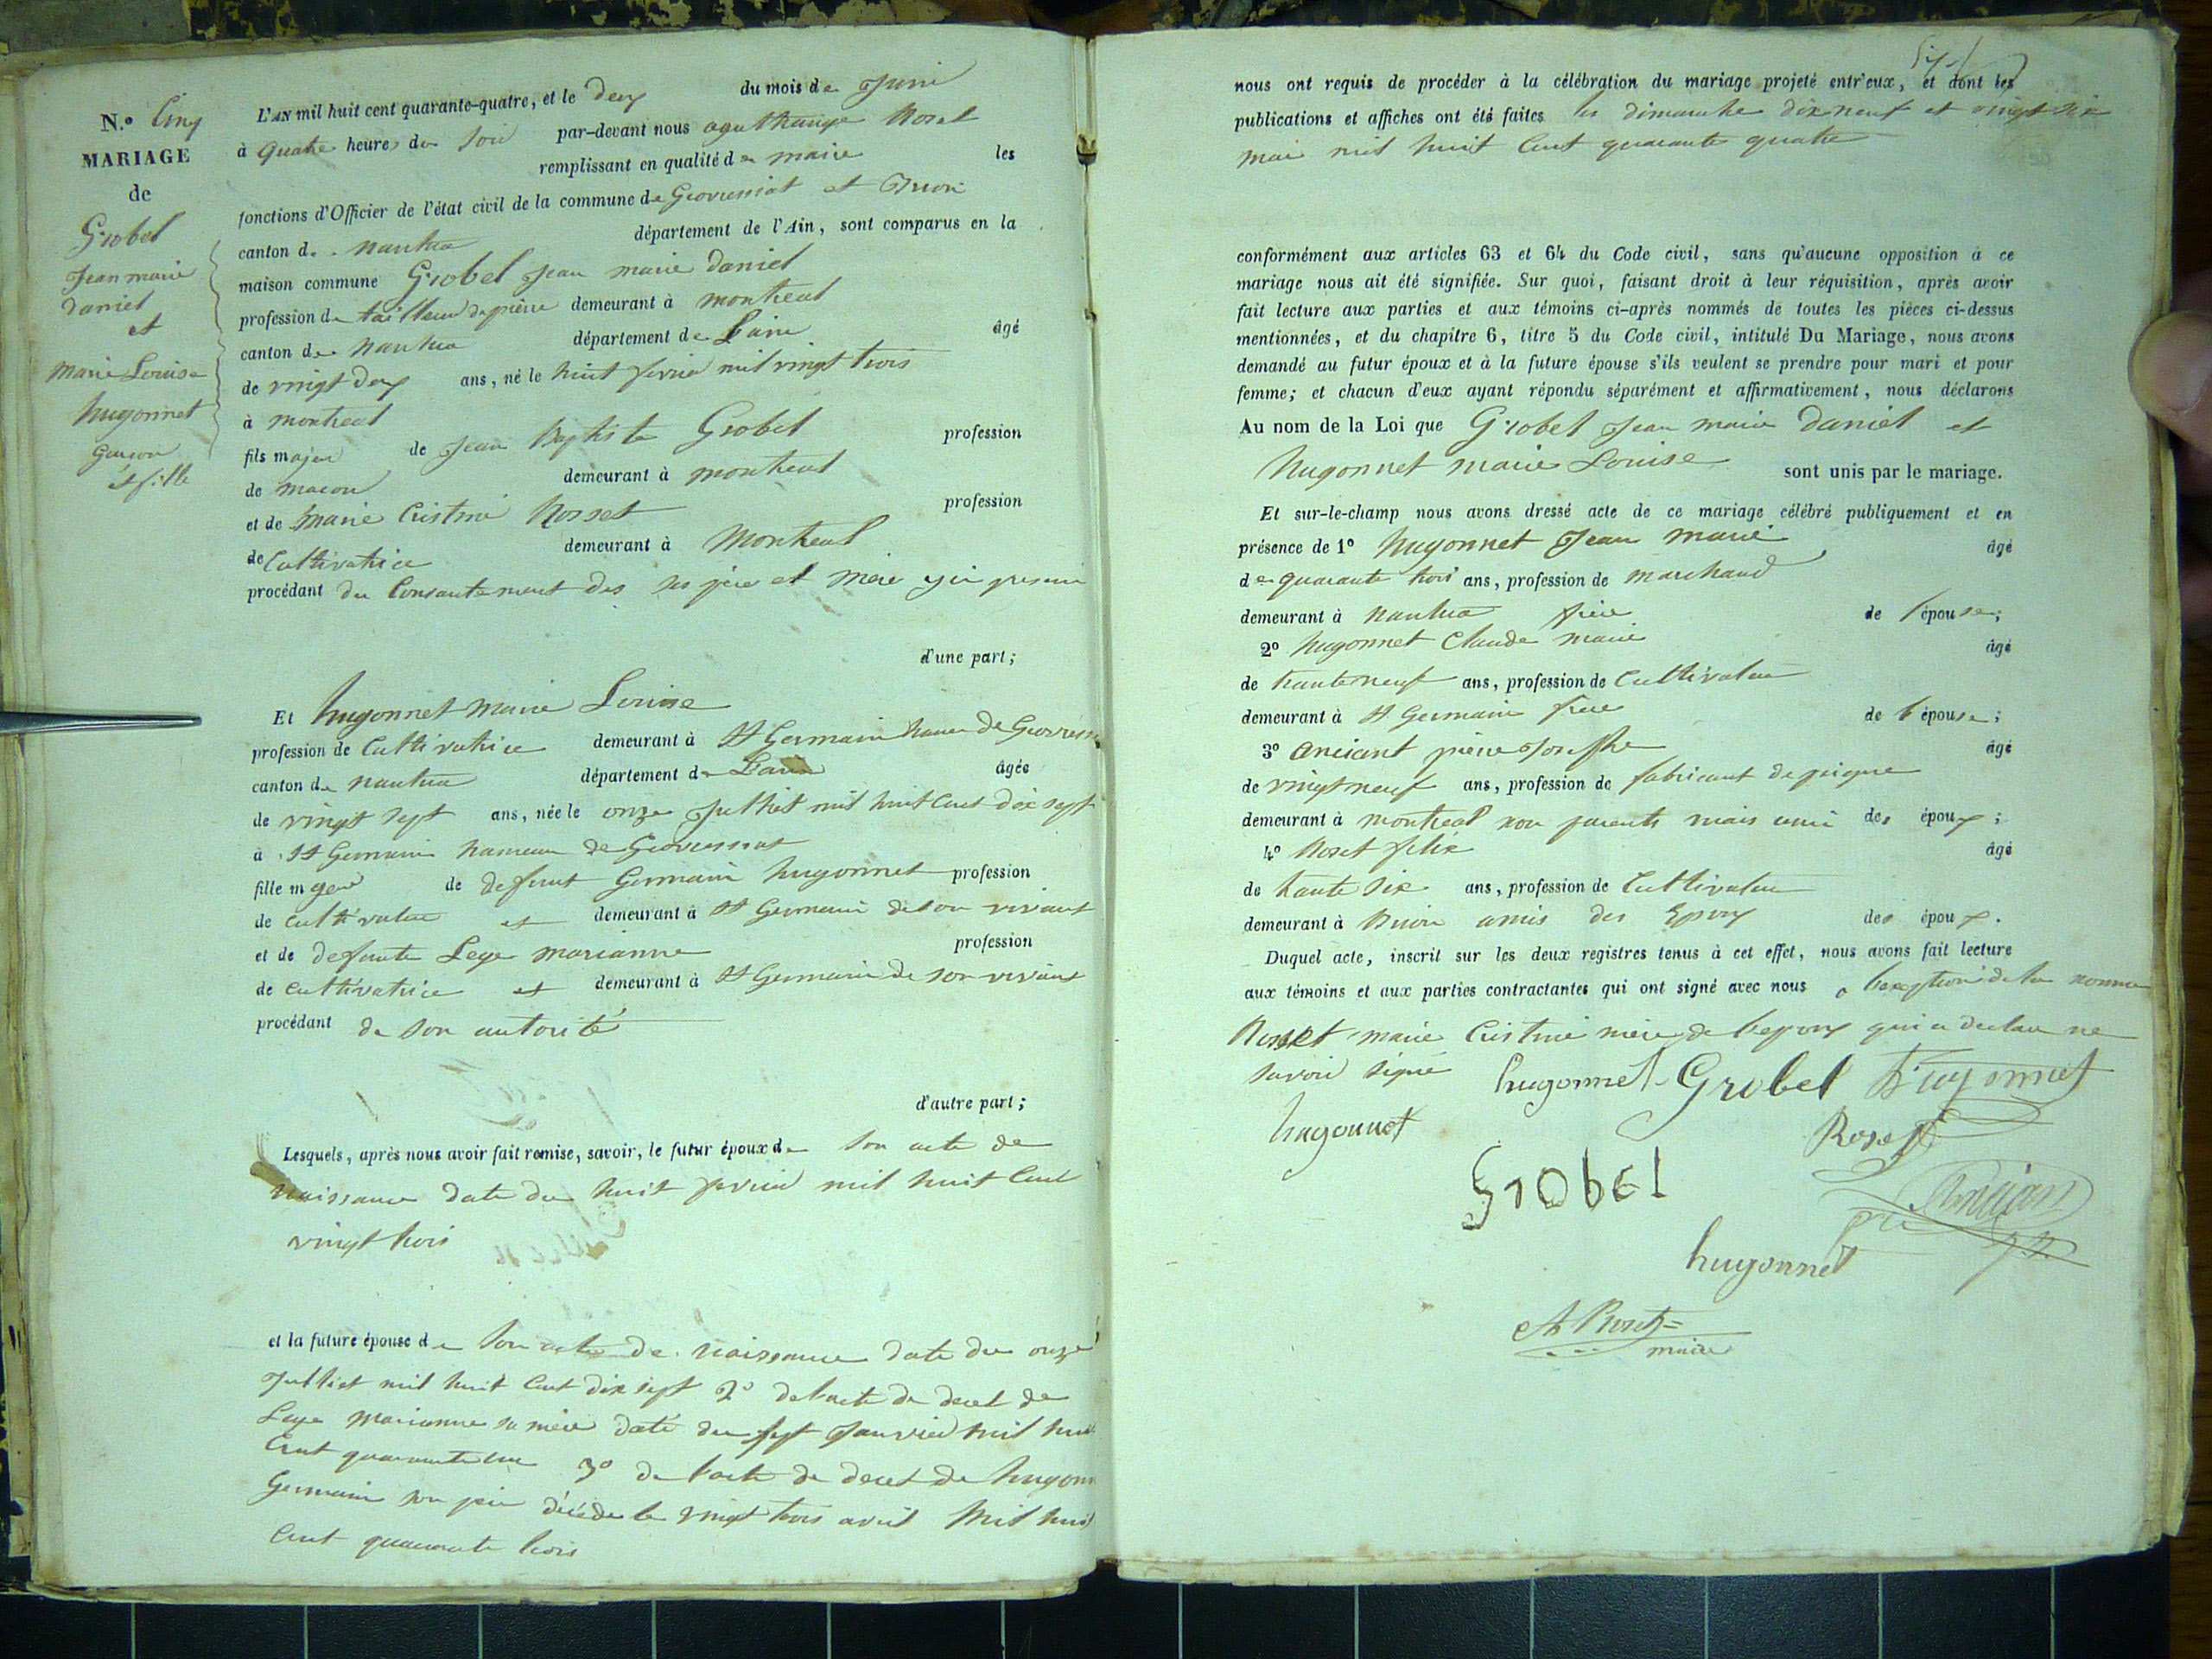 N.º Cinq
MARIAGE
de
Grobel
Jean marie
daniel
et
marie Louise
hugonnet
garçon
et fille
L'AN mil huit cent quarante-quatre, et le deux du mois de Juin
à quatre heures du soir par-devant nous agathange Roset
remplissant en qualité de maire les
fonctions d'Officier de l'état civil de la commune de Geovressiat et
canton de nantua département de l'Ain, sont comparus en la
maison commune Grobel Jean marie daniel
profession de tailleur de pierre demeurant à montreal
canton de nantua département de Lain âgé
de vingt deux ans, né le huit fevrie mil vingt trois
à montreal
fils majeur de Jean Baptiste Grobel profession
de macon demeurant à montreal
et de marie Cristine Rosset profession
de Cultivatrice demeurant à Montreal
procédant du Consantement des ses père et mere
d'une part;
Et hugonnet marie Louise
profession de Cultivatrice demeurant à St Germain hameau de
canton de nantua département de Lain âgée
de vingt sept ans, née le onze Julliet mil huit Cent dix sept
à St Germain hameau de Geovressiat
fille m geur de defunt Germain hugonnet profession
de cultivateur et demeurant à St Germain de son vivant
et de defunte Lege marianne profession
de cultivatrice et demeurant à St Germain de son vivant
procédant de son autorité
d'autre part;
Lesquels, après nous avoir fait remise, savoir, le futur époux de son acte de
naissance date du huit fevrie mil huit Cent
vingt trois
et la future épouse de son acte de naissance date du onze
Julliet mil huit Cent dix sept 2º de lacte de decet de
Lege marianne sa mère daté du sept Janvier mil huit
Cent quarante 3º de lacte de decet de hugonn
Germain son père décéde le vingt trois avril Mil huit
Cent quarante trois
nous ont requis de procéder à la célébration du mariage projeté entr'eux, et dont les
publications et affiches ont été faites les dimanche dix neuf et vingt six
mai mil huit Cent quarante quatre
conformément aux articles 63 et 64 du Code civil, sans qu'aucune opposition à ce
mariage nous ait été signifiée. Sur quoi, faisant droit à leur réquisition, après avoir
fait lecture aux parties et aux témoins ci-après nommés de toutes les pièces ci-dessus
mentionnées, et du chapitre 6, titre 5 du Code civil, intitulé Du Mariage, nous avons
demandé au futur époux et à la future épouse s'ils veulent se prendre pour mari et pour
femme; et chacun d'eux ayant répondu séparément et affirmativement, nous déclarons
Au nom de la Loi que Grobel Jean marie daniel et
hugonnet marie Louise sont unis par le mariage.
Et sur-le-champ nous avons dressé acte de ce mariage célébré publiquement et en
présence de 1º hugonnet Jean marie âgé
de quarante trois ans, profession de marchand
demeurant à nantua frère de lépouse;
2º hugonnet Claude marie âgé
de trante neuf ans, profession de Cultivateur
demeurant à St Germain frere de lépouse;
3º anciant pierre Joseph âgé
de vingt neuf ans, profession de fabricant de peigne
demeurant à montreal non parents mais ami des époux;
4º Roset felix âgé
de trante six ans, profession de Cultivateur
demeurant à amis des Epoux des époux.
Duquel acte, inscrit sur les deux registres tenus à cet effet, nous avons fait lecture
aux témoins et aux parties contractantes qui ont signé avec nous a lexeption de la nomme
Rosset marie Cristine mère de lepoux qui a declaré ne
savoir signé hugonnet Grobel hugonnet
hugonnet Roset
Grobel ancian
hugonnet
At Roset
maire